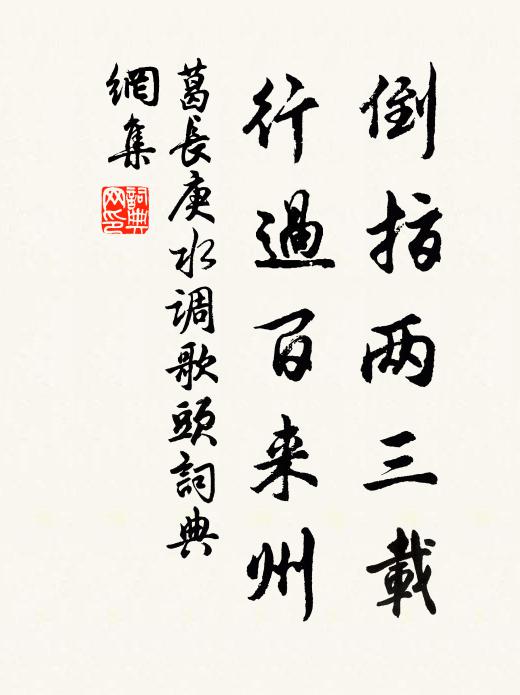 倒指两三載
行過百来州
葛長庚水調歌頭詞典
網集
詞典
网印